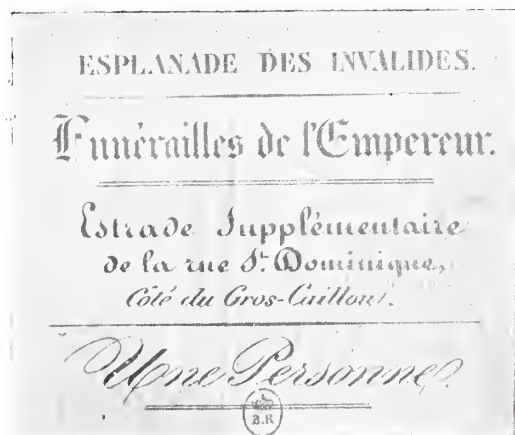 ESPLANADE DES INVALIDES.
Funérailles de l'Empereur.
Estrade Supplémentaire
de la rue St. Dominique,
Côté du Gros-Caillou.
Une Personne.
B.R